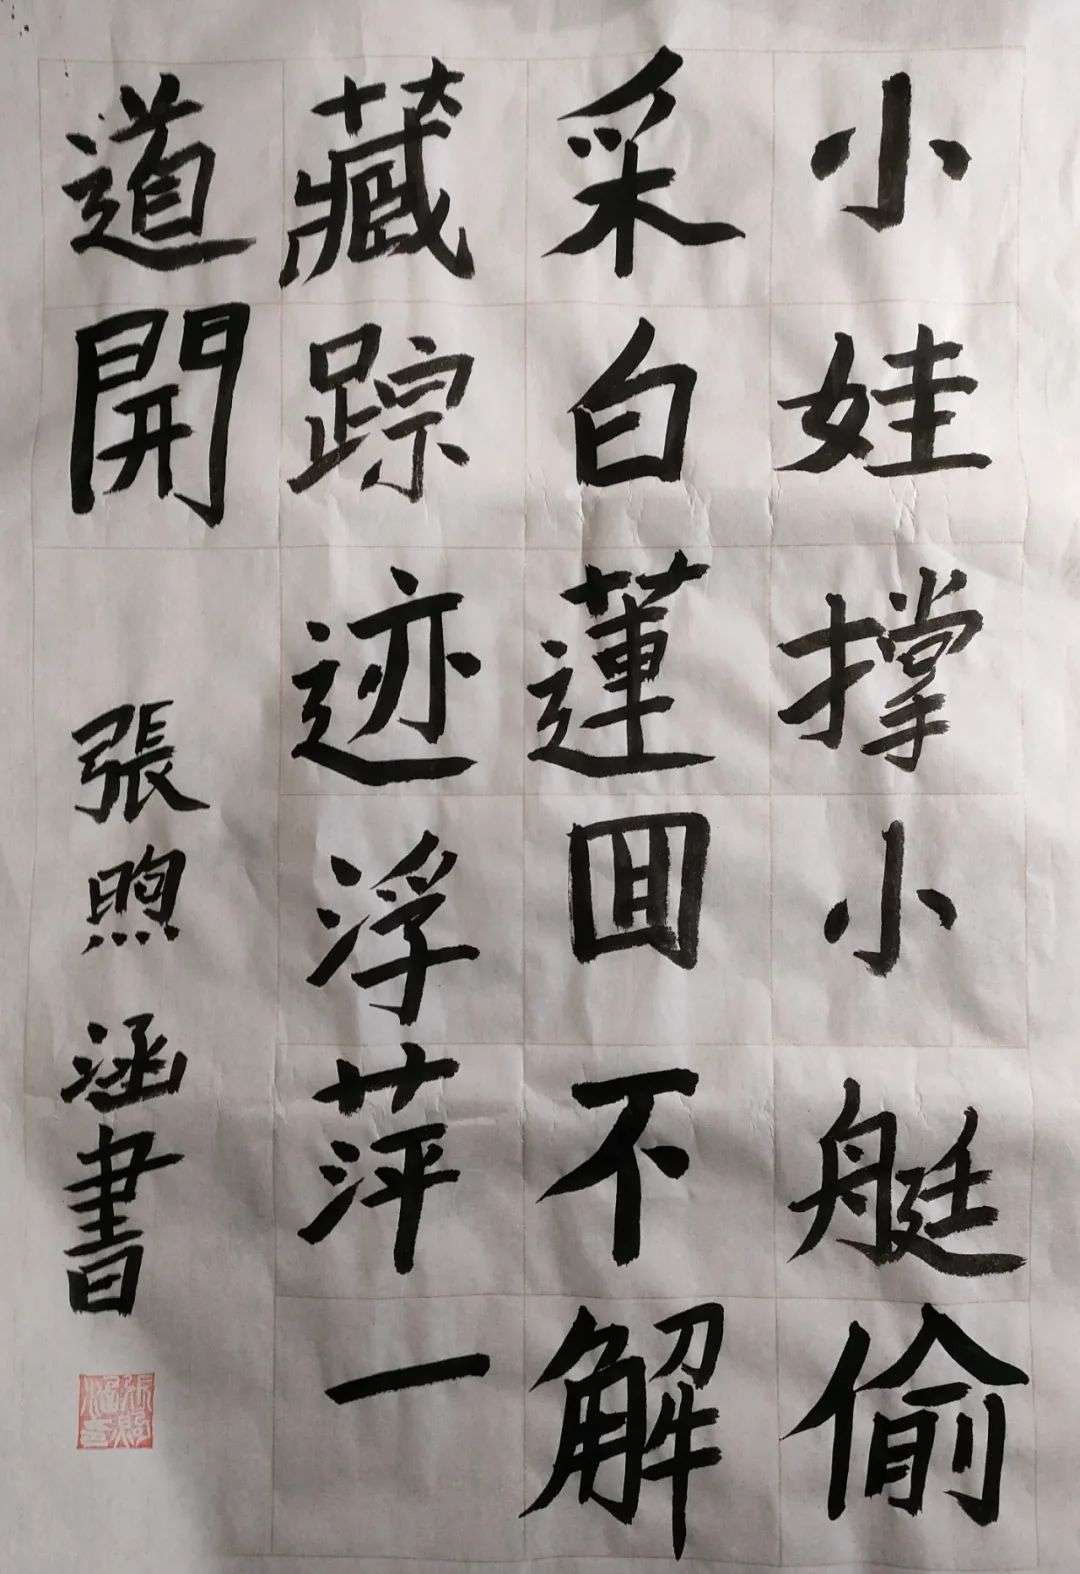 小娃撑小艇偷
采白蓮囬不解
藏踪迹浮萍一
道開
張煦涵書